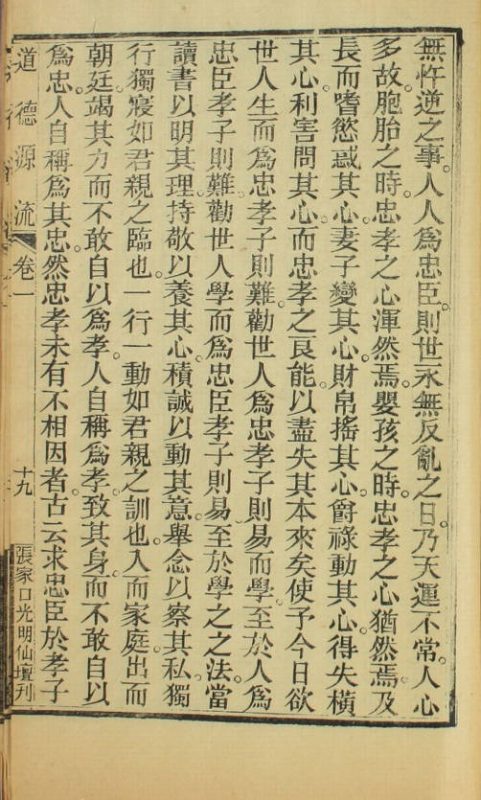 無忤逆之事。人人爲忠臣。則世永無反亂之日。乃天運不常。人心
多故。胞胎之時。忠孝之心渾然焉。嬰孩之時。忠孝之心猶然焉。及
長而嗜慾惑其心。妻子變其心。財帛搖其心。爵祿動其心。得失橫
其心。利害問其心。而忠孝之良能。以盡失其本來矣。使予今日欲
世人生而爲忠孝子則難。勸世人爲忠孝子則易。而學。至於人爲
忠臣孝子則難。勸世人學而爲忠臣孝子則易。至於學之之法。當
讀書以明其理。持敬以養其心。積誠以動其意。舉念以察其私。獨
行獨寢。如君親之臨也。一行一動。如君親之訓也。入而家庭。出而
朝廷。竭其力而不敢自以爲孝。人自稱爲孝。致其身。而不敢自以
爲忠。人自稱爲其忠。然忠孝未有不相因者。古云求忠臣於孝子
道德源流 卷一 十九 張家口光明仙壇刊